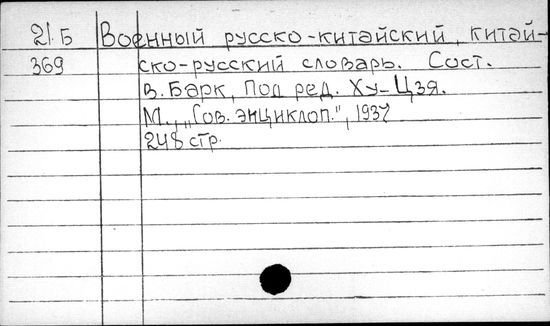 21.Б Военный русско-китайский, китай-
369 ско-русский словарь. Сост.
В. Барк, Под ред. Ху-Цзя.
М., „Сов. энциклоп.", 1937
248 стр.